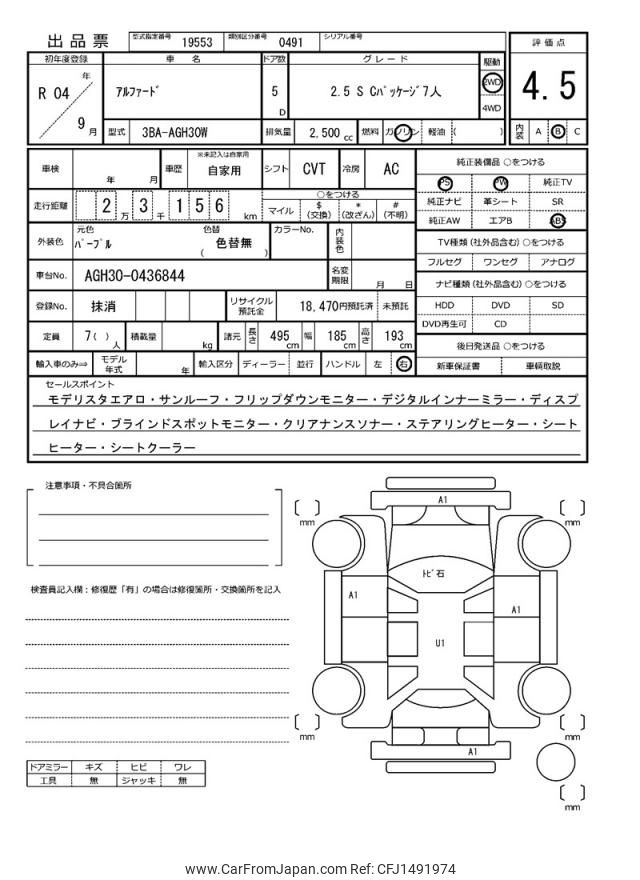 出品票 型式指定番号 19553 類別区分番号 0491 シリアル番号
初年度登録 車 名 ドア数 グレード 駆動 評価点
R 04 年 9 月 アルファード 5 D 2.5 S Cパッケージ7人 2WD 4WD 4.5
型式 3BA-AGH30W 排気量 2,500 cc 燃料 ガソリン 軽油 ( ) 内装 A B C
車検 年 月 車歴 ※未記入は自家用 自家用 シフト CVT 冷房 AC 純正装備品 ○をつける
PS PW 純正TV
走行距離 2 万 3 千 1 5 6 km ○をつける 純正ナビ 革シート SR
マイル $(交換) *(改ざん) #(不明) 純正AW エアB ABS
外装色 元色 パープル 色替 ( 色替無 ) カラーNo. 内装色 TV種類(社外品含む)○をつける
フルセグ ワンセグ アナログ
車台No. AGH30-0436844 名変期限 月 日 ナビ種類(社外品含む)○をつける
登録No. 抹消 リサイクル預託金 18,470円預託済 未預託 HDD DVD SD
DVD再生可 CD
定員 7( ) 人 積載量 kg 諸元 長さ 495 cm 幅 185 cm 高さ 193 cm 後日発送品 ○をつける
輸入車のみ⇒ モデル年式 年 輸入区分 ディーラー 並行 ハンドル 左 右 新車保証書 車輌取説
セールスポイント
モデリスタエアロ・サンルーフ・フリップダウンモニター・デジタルインナーミラー・ディスプ
レイナビ・ブラインドスポットモニター・クリアナンスソナー・ステアリングヒーター・シート
ヒーター・シートクーラー
注意事項・不具合箇所
検査員記入欄：修復歴「有」の場合は修復箇所・交換箇所を記入
A1
mm mm
トビ石
A1 A1
U1
mm mm
A1
mm
ドアミラー キズ ヒビ ワレ
工具 無 ジャッキ 無
www.CarFromJapan.com Ref: CFJ1491974